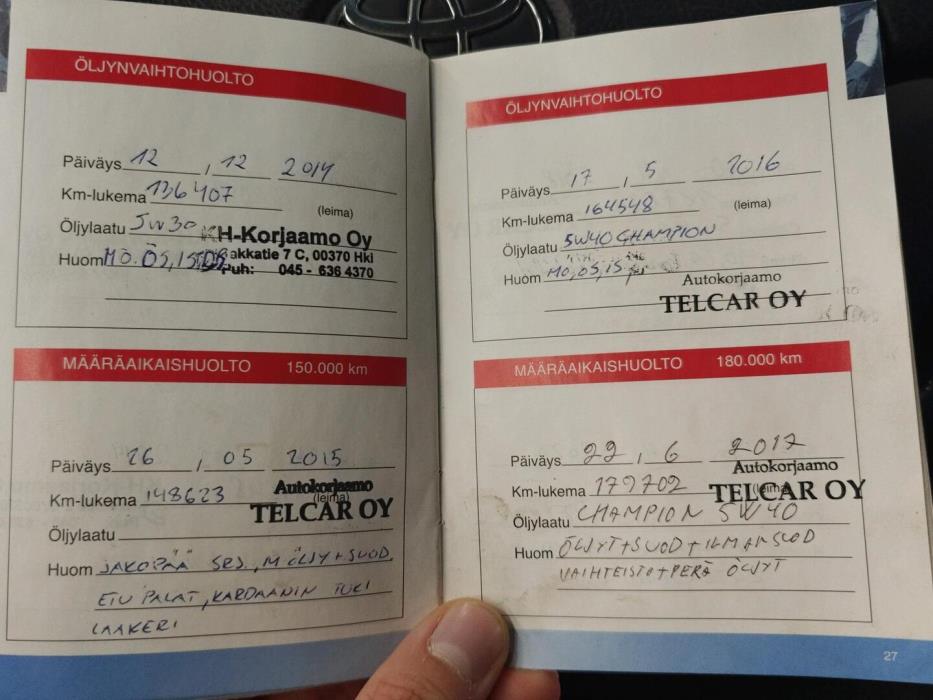 ÖLJYNVAIHTOHUOLTO
Päiväys 12 , 12 2014
Km-lukema 136407
(leima)
Öljylaatu 5W30
KH-Korjaamo Oy
akkatie 7 C, 00370 Hki
Puh: 045 - 636 4370
Huom MO. ÖS, IS
MÄÄRÄAIKAISHUOLTO 150.000 km
Päiväys 26 , 05 2015
Km-lukema 148623
(leima)
Autokorjaamo
TELCAR OY
Öljylaatu
Huom JAKOPÄÄ SRJ., M ÖLJY+SUOD,
ETU PALAT, KARDAANIN TUKI
LAAKERI
ÖLJYNVAIHTOHUOLTO
Päiväys 17 , 5 2016
Km-lukema 164548
(leima)
Öljylaatu 5W40 CHAMPION
Huom MO, ÖS, IS
Autokorjaamo
TELCAR OY
MÄÄRÄAIKAISHUOLTO 180.000 km
Päiväys 22 , 6 2017
Autokorjaamo
Km-lukema 179702
(leima)
TELCAR OY
Öljylaatu CHAMPION 5W40
Huom ÖLJYT+SUOD+ILMANSUOD
VAIHTEISTO+PERÄ ÖLJYT
27